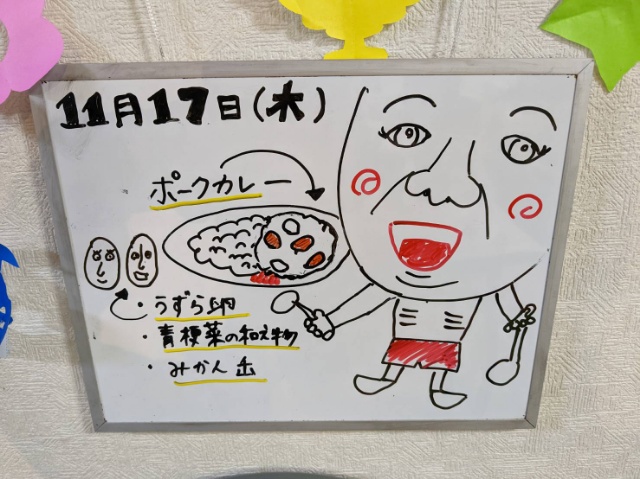 11月17日(木)
ポークカレー
・うずら卵
・青梗菜の和え物
・みかん缶